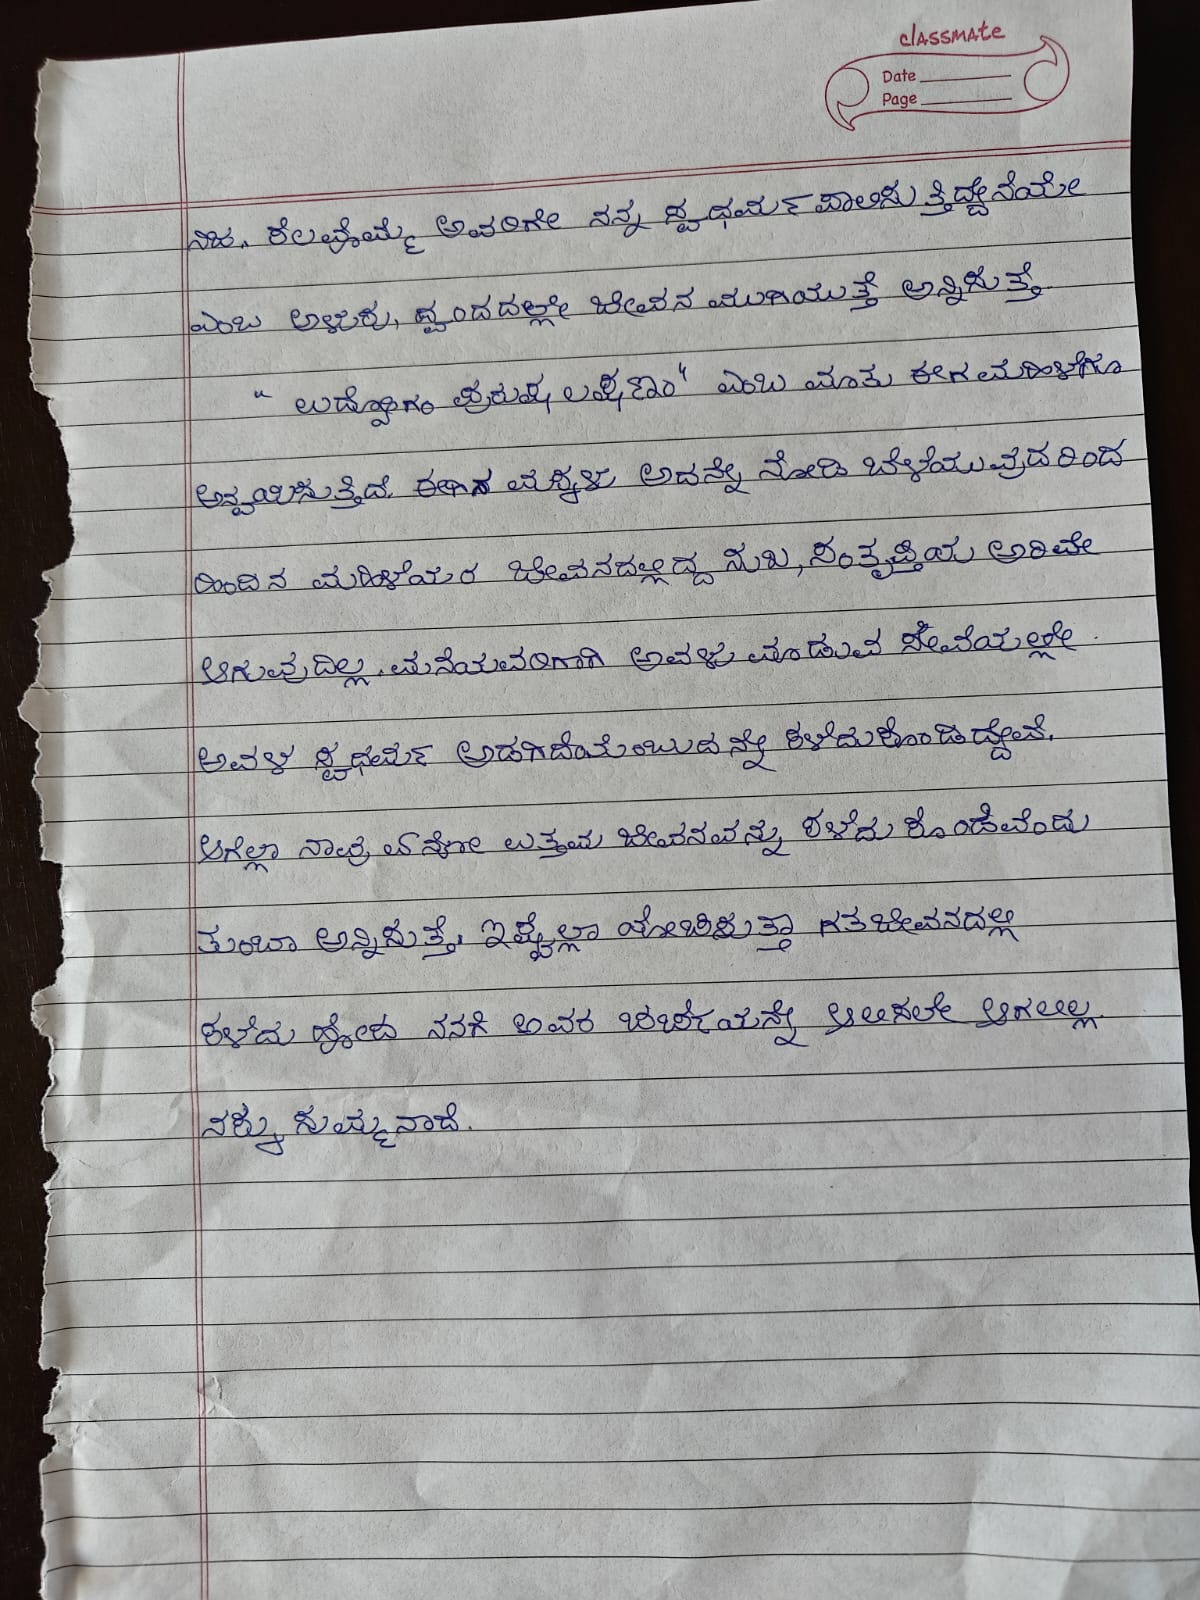 classmate
Date
Page
ನಿಜ. ಕೆಲವೊಮ್ಮೆ ಅವರಿಗೇ ನನ್ನ ಸ್ವಧರ್ಮ ಪಾಲಿಸುತ್ತಿದ್ದೇನೆಯೇ
ಎಂಬ ಅಳುಕು, ದ್ವಂದದಲ್ಲೇ ಜೀವನ ಮುಗಿಯುತ್ತೆ ಅನ್ನಿಸುತ್ತೆ.
" ಉದ್ಯೋಗಂ ಪುರುಷ ಲಕ್ಷಣಂ" ಎಂಬ ಮಾತು ಈಗ ಮಹಿಳೆಗೂ
ಅನ್ವಯಿಸುತ್ತಿದೆ. ಈಗಿನ ಮಕ್ಕಳು ಅದನ್ನೇ ನೋಡಿ ಬೆಳೆಯುವುದರಿಂದ
ಹಿಂದಿನ ಮಹಿಳೆಯರ ಜೀವನದಲ್ಲಿದ್ದ ಸುಖ, ಸಂತೃಪ್ತಿಯ ಅರಿವೇ
ಆಗುವುದಿಲ್ಲ. ಮನೆಯವರಿಗಾಗಿ ಅವಳು ಮಾಡುವ ಸೇವೆಯಲ್ಲೇ
ಅವಳ ಸ್ವಧರ್ಮ ಅಡಗಿದೆಯೆಂಬುದನ್ನೇ ಕಳೆದುಕೊಂಡಿದ್ದೇವೆ.
ಆಗೆಲ್ಲಾ ನಾವು ಏನೋ ಉತ್ತಮ ಜೀವನವನ್ನು ಕಳೆದು ಕೊಂಡೆವೆಂದು
ತುಂಬಾ ಅನ್ನಿಸುತ್ತೆ. ಇಷ್ಟೆಲ್ಲಾ ಯೋಚಿಸುತ್ತಾ ಗತಜೀವನದಲ್ಲಿ
ಕಳೆದು ಹೋದ ನನಗೆ ಅವರ ಚರ್ಚೆಯನ್ನೇ ಆಲಿಸಲೇ ಆಗಲಿಲ್ಲ.
ನಕ್ಕು ಸುಮ್ಮನಾದೆ.